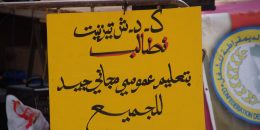 ك.د.ش تيزنيت
تطالب
بتعليم عمومي مجاني جيد
للجميع